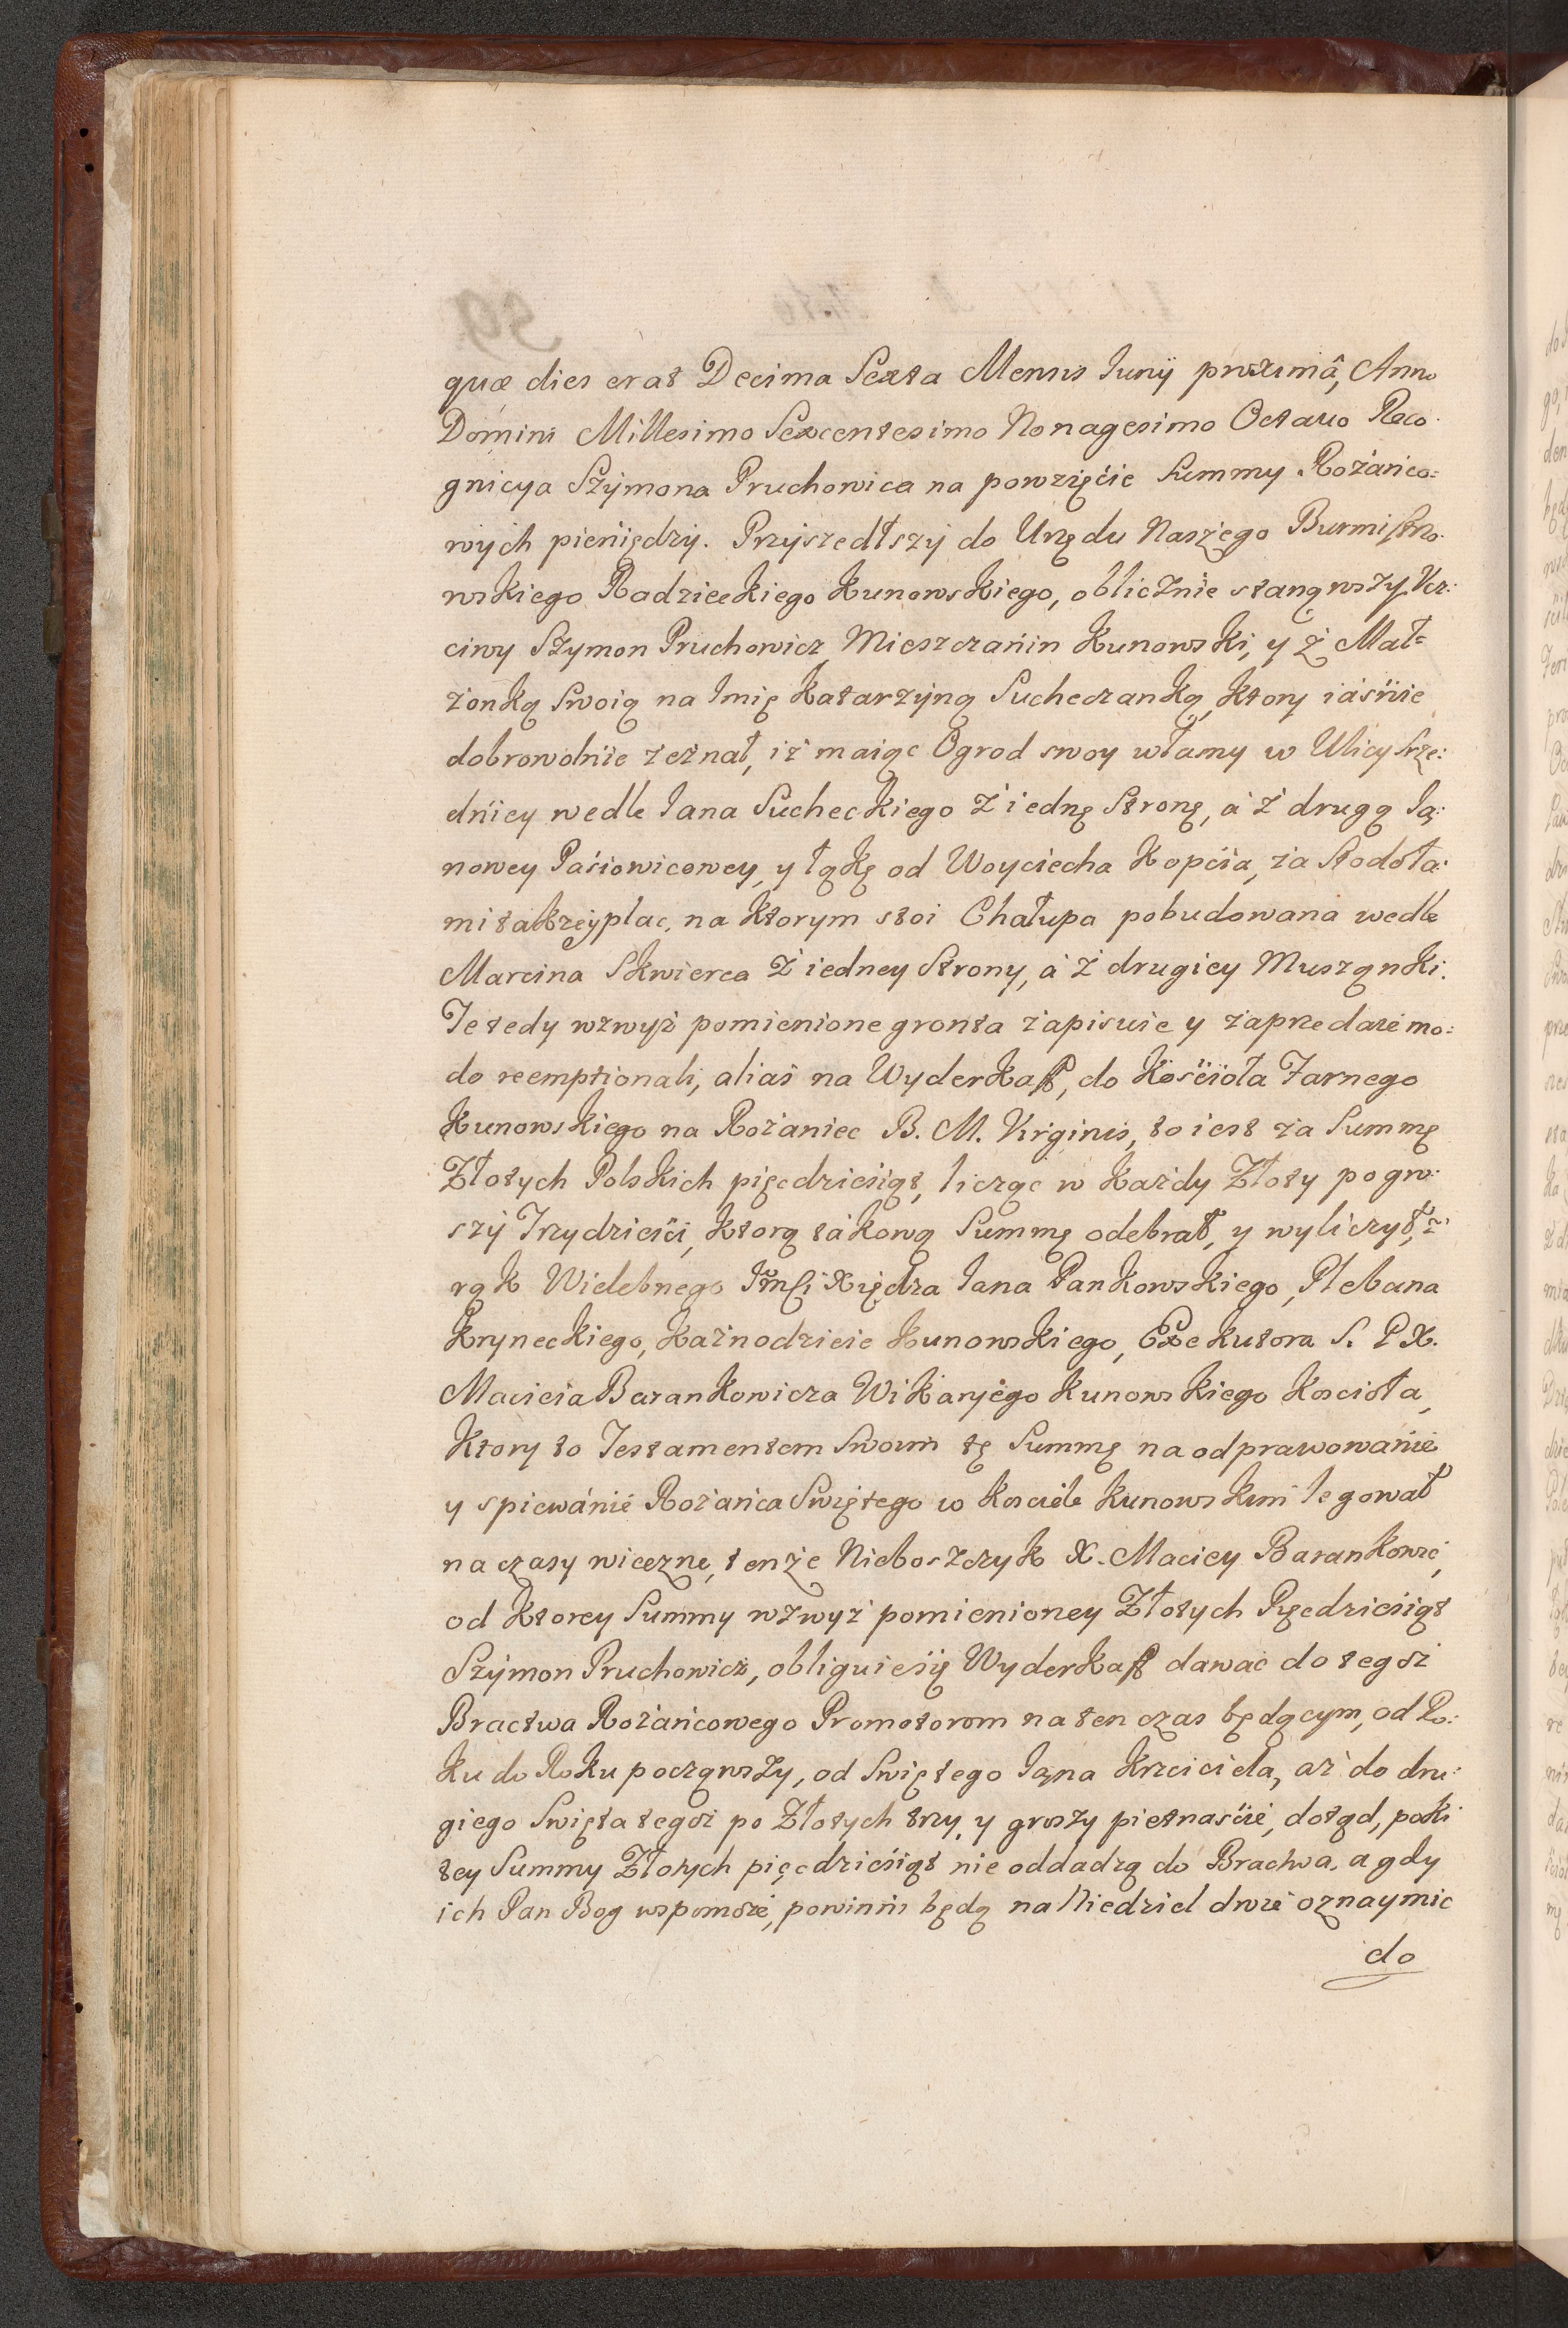 quæ dies erat Decima Sexta Mensis Iunij proximâ, Anno
Domini Millesimo Sexcentesimo Nonagesimo Octauo Reco
gnicya Szymona Pruchowica na powzięćie Summy Rożańco=
wych pieniędzy. Przyszedłszy do Urzędu Naszego Burmistrzo
wskiego Radzieckiego Kunowskiego, oblicznie stanąwszy Vcz:
ciwy Szymon Pruchowicz Mieszczańin Kunowski, y ż Mał=
żonką Swoią na Imię Katarzyną Sucheczanką, ktory iaśnie
dobrowolnie zeznał, iż maiąc Ogrod swoy własny w Ulicy Srze:
dńiey wedle Iana Sucheckiego ż iedną Stronę, a ż drugą Ia:
nowey Paśiowicowey, y łąkę od Woyciecha Kopćia, za Stodoła:
mi takżeÿ plac, na ktorym stoi Chałupa pobudowana wedle
Marcina Skwierca ż iedney Strony, a ż drugiey Muszynki.
Te tedy wzwyż pomienione gronta żapisuie y żaprzedaie mo:
do reemptionali, alias na Wyderkaff, do Kościoła Farnego
Kunowskiego na Rożaniec B. M. Virginis, to iest za Summę
Złotych Polskich pięcdziesiąt, licząc w każdy Złoty po gro:
szy Trzydzieśći, ktorą tákową Summę odebrał, y wyliczył, z
rąk Wielebnego Jmści Xiędza Iana Pankowskiego, Plebana
Kryneckiego, Kaznodzieie Kunowskiego, Exekutora S. P X.
Macieia Barankowicza Wikaryego Kunowskiego Koscioła,
Ktory to Testamentem Swoim tę Summę na odprawowánié
y spiewánié Rożańca Swiętego w Kościele Kunowskim legował
na czasy wieczne, tenże Nieboszczyk X. Maciey Barankowic,
od ktorey Summy wzwyż pomienioney Złotych Pięcdziesiąt
Szymon Pruchowicz, obliguie się Wyderkaff dawać do tegoż
Bractwa Rożańcowego Promotorom na ten czas będącym, od Ro:
ku do Roku począwszy, od Swiętego Iana Krzciciela, aż do dru:
giego Swięta tegoż po Złotych trzy, y groszy pietnaście, dotąd, poki
tey Summy Złotych pięcdziesiąt nie oddadzą do Bractwa, a gdy
ich Pan Bog wspomoże, powinńi będą na Niedziel dwie oznaymic
do